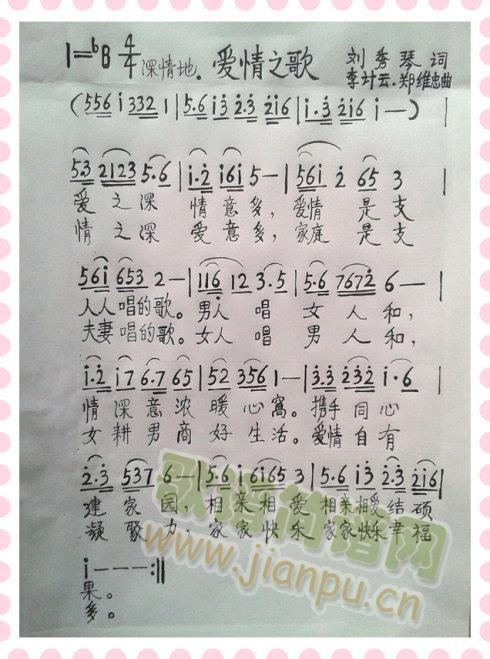 1=♭B 4/4 深情地. 爱情之歌 刘秀琴词
李计云.郑维忠曲
(556 i 332 1 | 5.6 i3 2.3 2i6 | i.3 2i6 i — ) |
5.3 2123 5.6 | i.2 i6i 5 — | 56i 2 65 3 |
爱 之 深 情 意 多, 爱情 是 支
情 之 深 爱 意 多, 家庭 是 支
56i 653 2 — | 116 12 3.5 | 5.6 7672 6 — |
人人 唱的歌。男人 唱 女 人 和,
夫妻 唱的歌。女人 唱 男 人 和,
i.2 i7 6.7 65 | 52 356 1 — | 3.3 232 i.6 |
情 深 意 浓 暖 心 窝。携手 同 心
女 耕 男 商 好 生 活。爱情 自 有
2.3 537 6 — | 5.6 i.6i65 3 | 5.6 i3 2.3 2i6 |
建 家 园, 相 亲 相 爱 相亲相爱 结 硕
凝 聚 力, 家 家 快 乐 家家快乐 幸 福
i — — — :||
果。
多。
歌谱简谱网
www.jianpu.cn